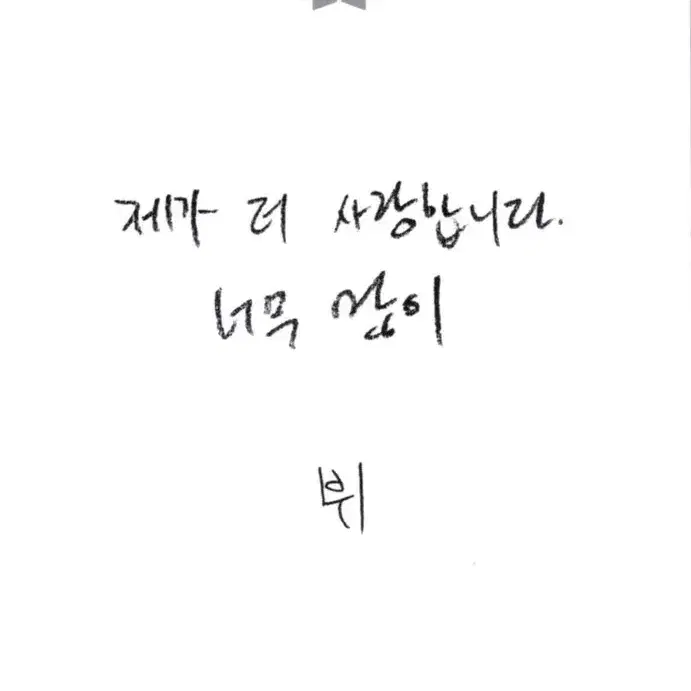 제가 더 사랑합니다.
너무 많이
뷔